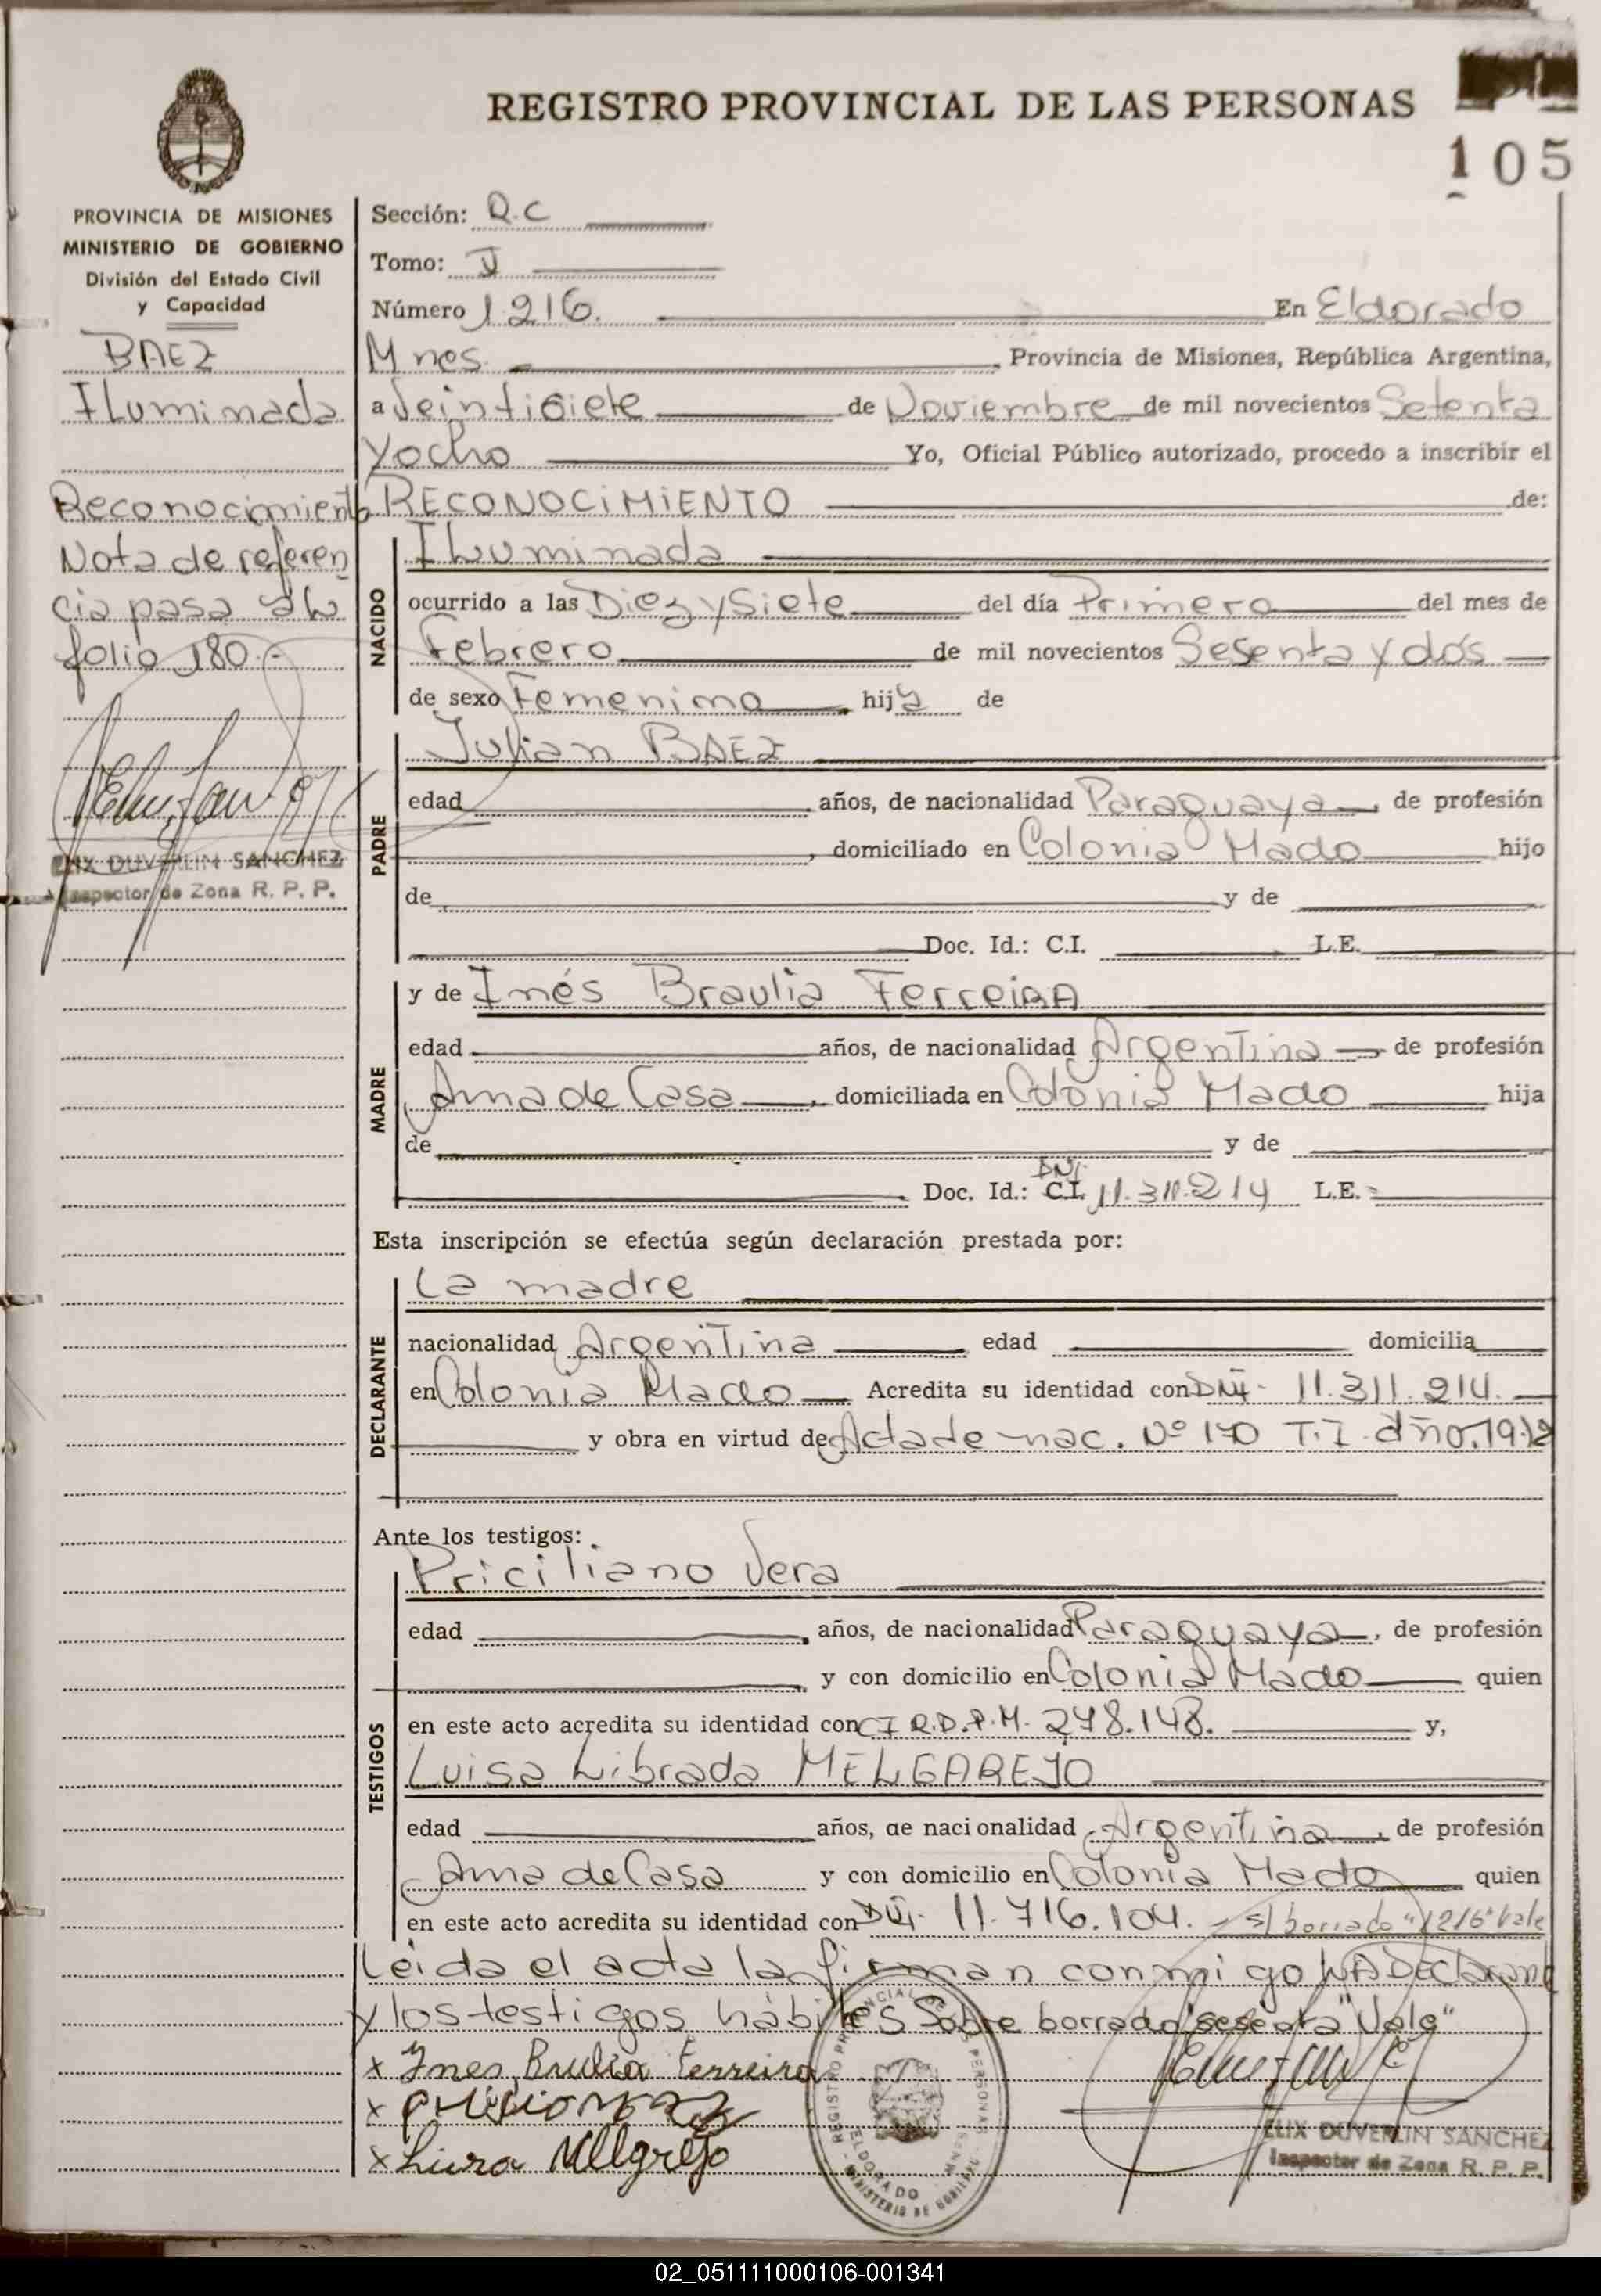 REGISTRO PROVINCIAL DE LAS PERSONAS
105
PROVINCIA DE MISIONES
MINISTERIO DE GOBIERNO
División del Estado Civil
y Capacidad
BAEZ
Iluminada
Reconocimiento
Nota de referen
cia pasa al
folio 180.-
ELIX DUVERLIN SANCHEZ
Inspector de Zona R. P. P.
Sección:
Tomo:
Número 1216. En Eldorado
Mnes. , Provincia de Misiones, República Argentina,
a Veintisiete de Noviembre de mil novecientos Setenta
y ocho Yo, Oficial Público autorizado, procedo a inscribir el
RECONOCIMIENTO de:
NACIDO
Iluminada
ocurrido a las Diez y Siete del día Primero del mes de
Febrero de mil novecientos Sesenta y dós
de sexo Femenino hija de
PADRE
Julian BAEZ
edad años, de nacionalidad Paraguaya, de profesión
, domiciliado en Colonia Mado hijo
de y de
Doc. Id.: C.I. L.E.
MADRE
y de Inés Braulia FerreiRA
edad años, de nacionalidad Argentina de profesión
Ama de Casa, domiciliada en Colonia Mado hija
de y de
DNI.
Doc. Id.: C.I. 11.311.214 L.E.
Esta inscripción se efectúa según declaración prestada por:
DECLARANTE
La madre
nacionalidad Argentina edad domicilia
en Colonia Mado Acredita su identidad con DNI- 11.311.214.
y obra en virtud de Acta de nac. Nº 170 T.I. año
Ante los testigos:
TESTIGOS
Priciliano Vera
edad , años, de nacionalidad Paraguaya, de profesión
, y con domicilio en Colonia Mado quien
en este acto acredita su identidad con CI R.D.P.M. 278.148. y,
Luisa Librada MELGAREJO
edad años, de nacionalidad Argentina, de profesión
Ama de Casa y con domicilio en Colonia Mado quien
en este acto acredita su identidad con DNI- 11.716.104. - s/ borrado "1216" Vale
Leida el acta la firman conmigo LA Declarante
y los testigos hábiles Sobre borrado "sesenta" Vale"
x Ines Brulia Ferreira
x
x Luisa Melgrejo
REGISTRO PROVINCIAL DE LAS PERSONAS
ELDORADO
MINISTERIO DE GOBIERNO
ELIX DUVERLIN SANCHEZ
Inspector de Zona R. P. P.
02_051111000106-001341